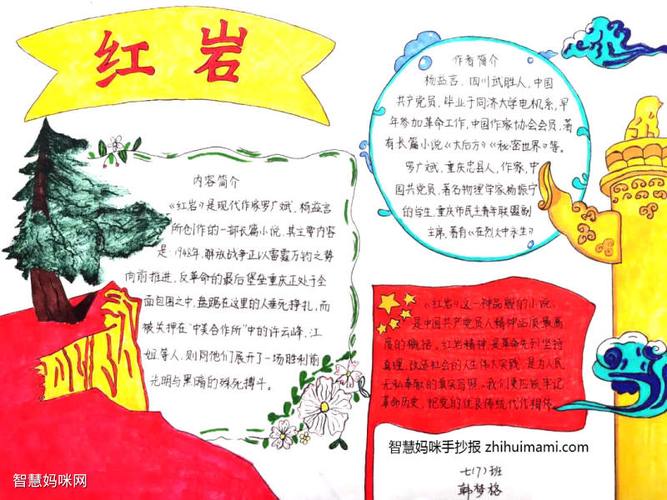 红岩
内容简介
《红岩》是现代作家罗广斌、杨益言
所创作的一部长篇小说,其主要内容
是:1948年,解放战争正以雷霆万钧之势
向前推进,反革命的最后堡垒重庆正处于全
面包围之中,盘踞在这里的人垂死挣扎,而
被关押在"中美合作所"中的许云峰、江
姐等人,则同他们展开了一场胜利前
光明与黑暗的殊死搏斗。
作者简介
杨益言,四川武胜人,中国
共产党员,毕业于同济大学电机系,早
年参加革命工作,中国作家协会会员,著
有长篇小说《大后方》《秘密世界》等。
罗广斌,重庆忠县人,作家,中
国共产党员,著名物理学家杨振宁
的学生,重庆市民主青年联盟副
主席,著有《在烈火中永生》
《红岩》这一种品貌的小说,
是中国共产党员人精神品质最高
度的概括,红岩精神,是革命先烈坚持
真理,改造社会的人生伟大实践,是为人民
无私奉献的真实写照,我们更应该牢记
革命历史,把党的优良传统代代相传
智慧妈咪手抄报 zhihuimami.com
七(7)班
韩梦格
智慧妈咪网